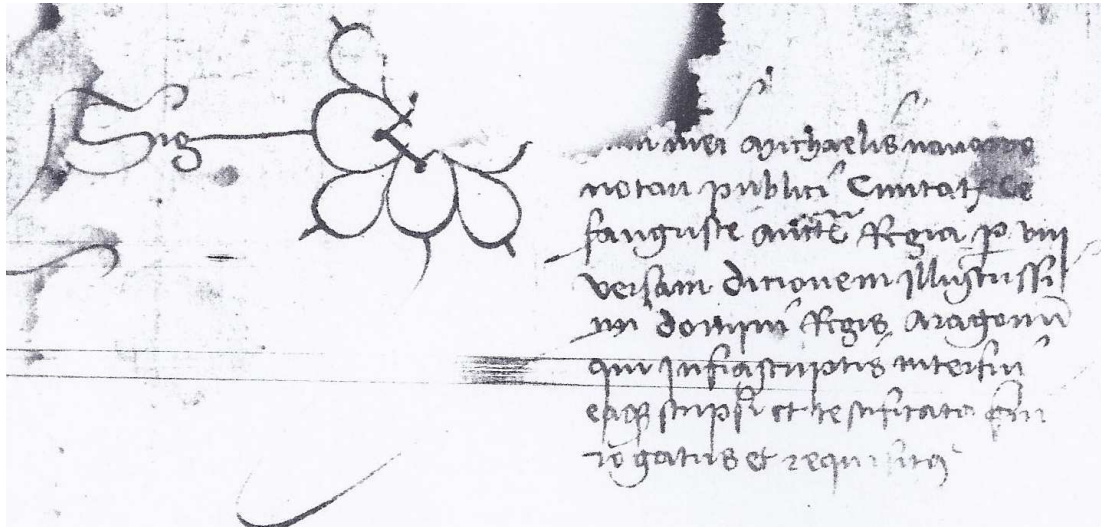 Sig
mei Michaelis navarro
notarii publici Civitatis Ce
sarauguste auctte Regia per uni
versam dicionem illustrissi
mi domini Regis Aragonum
qui infrascriptis interfui
eaque scripsi et testificata
rogatus et requisitus